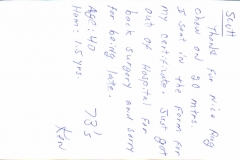 Scott
Thanks for nice Rag
chew on 20 mtrs.
I sent in the form for
my certificate. Just got
out of Hospital for
back surgery and sorry
for being late.
73's
Age: 40
Ham: 1.5 yrs.